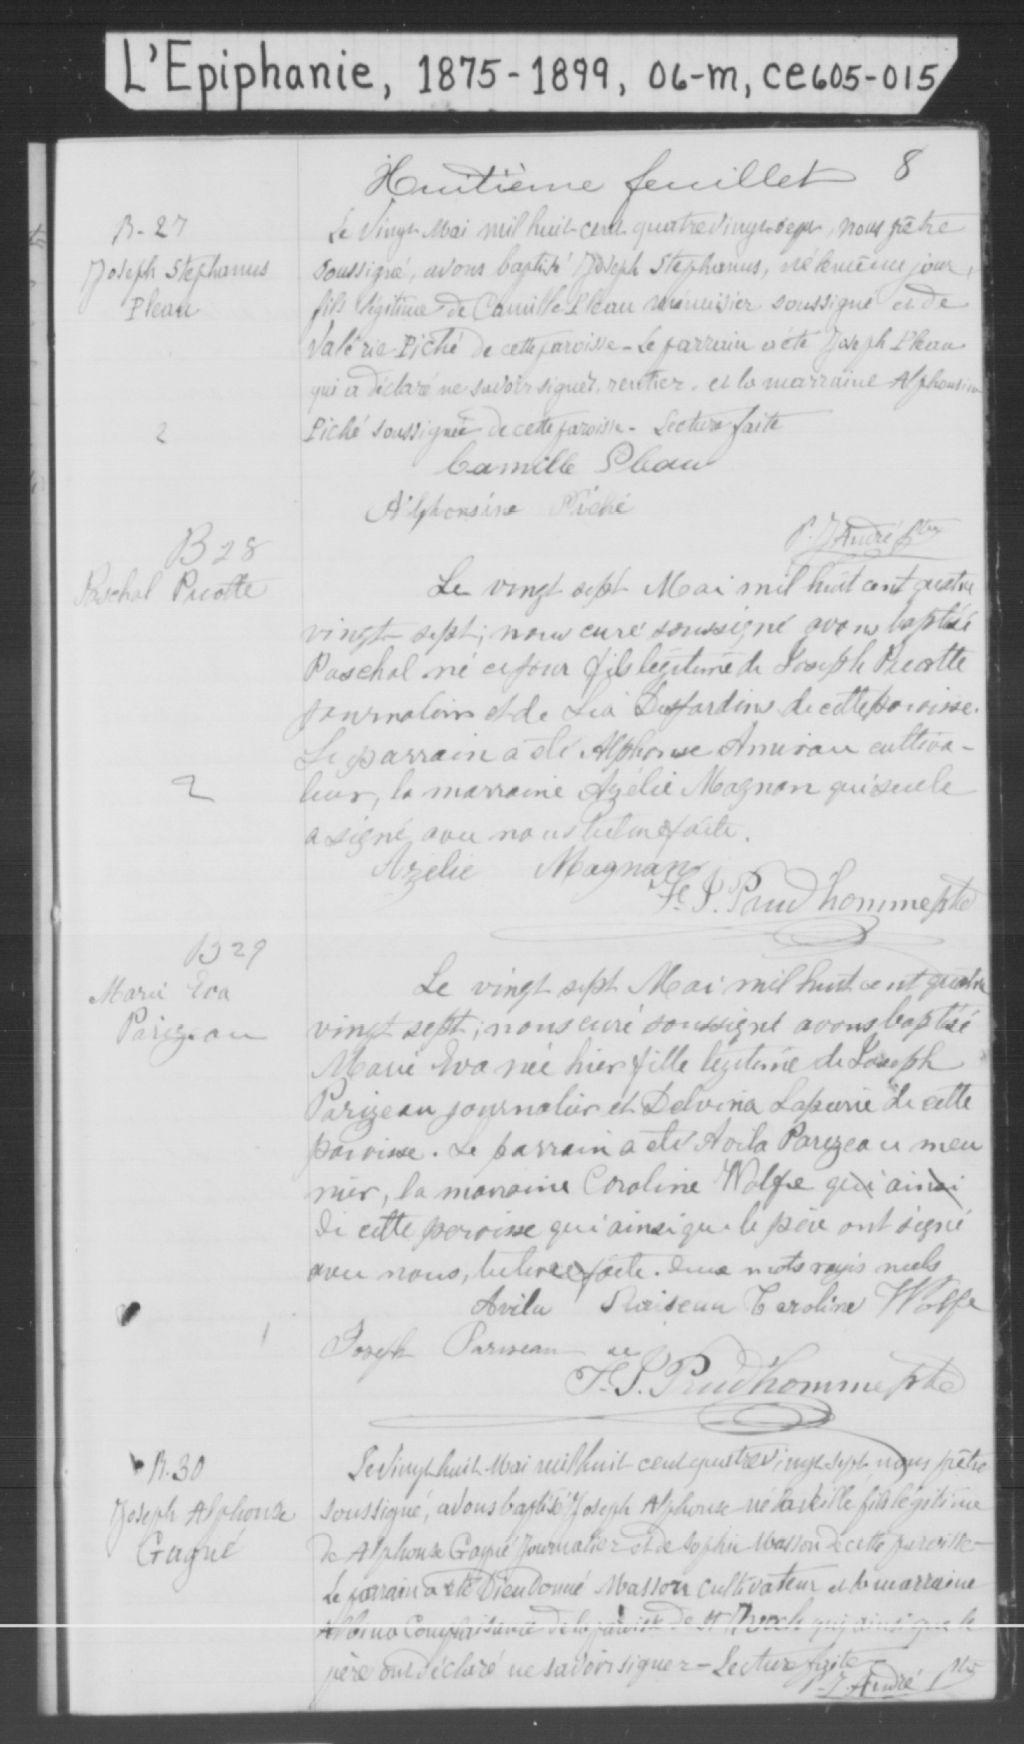 L'Epiphanie, 1875-1899, 06-m, CE605-015
Huitième feuillet 8
B-27
Joseph Stephanus
Pleau
2
Le vingt Mai mil huit cent quatre vingt sept, nous prêtre
soussigné, avons baptisé Joseph Stephanus, né le même jour,
fils légitime de Camille Pleau menuisier soussigné et de
Valérie Piché de cette paroisse - Le parrain a été Joseph Pleau
qui a déclaré ne savoir signer, rentier. et la marraine Alphonsine
Piché soussignée de cette paroisse - Lecture faite
Camille Pleau
Alphonsine Piché
P. J. André ptre
B 28
Paschal Picotte
2
Le vingt sept Mai mil huit cent quatre
vingt-sept; nous curé soussigné avons baptisé
Paschal né ce jour fils légitime de Joseph Picotte
journalier et de Léa Desjardins de cette paroisse.
Le parrain a été Alphonse Amireau cultiva-
teur, la marraine Azélie Magnan qui seule
a signé avec nous lecture faite.
Azelie Magnan
F. J. Prud'homme ptre
B 29
Marie Eva
Parizeau
1
Le vingt sept Mai mil huit cent quatre
vingt sept; nous curé soussigné avons baptisé
Marie Eva née hier fille légitime de Joseph
Parizeau journalier et Delvina de cette
paroisse. Le parrain a été Avila Parizeau meu
nier, la marraine Caroline Wolfe qui ainsi
de cette paroisse qui ainsi que le père ont signé
avec nous, lecture faite. deux mots rayés nuls
Avila Caroline Wolfe
Joseph Pariseau
F. J. Prud'homme ptre
B. 30
Joseph Alphonse
Gagné
Le vingt huit Mai mil huit cent quatre vingt sept nous prêtre
soussigné, avons baptisé Joseph Alphonse né la veille fils légitime
de Alphonse Gagné Journalier et de Sophie Masson de cette paroisse -
Le parrain a été Dieudonné Masson Cultivateur et la marraine
Albina de la paroisse de St Roch qui ainsi que le
père ont déclaré ne savoir signer - Lecture faite
P. J. André ptre